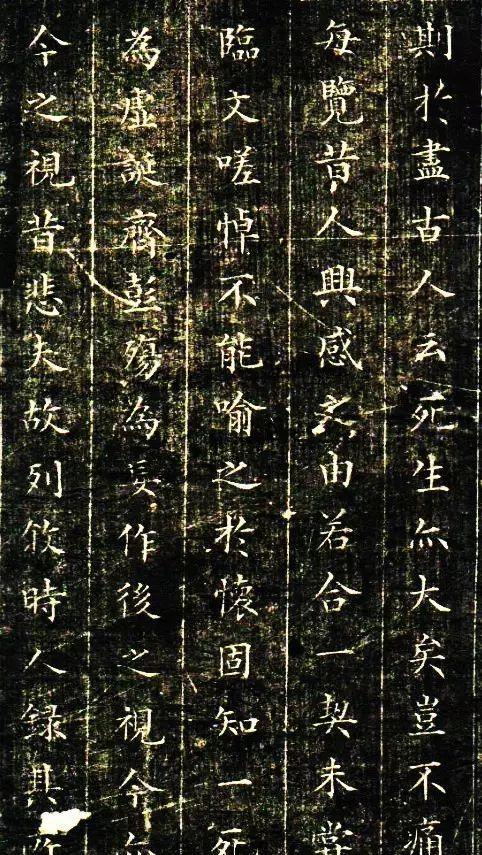 則於盡古人云死生亦大矣豈不痛
每覽昔人興感之由若合一契未嘗
臨文嗟悼不能喻之於懷固知一死
為虛誕齊彭殤為妄作後之視今亦
今之視昔悲夫故列敘時人錄其所